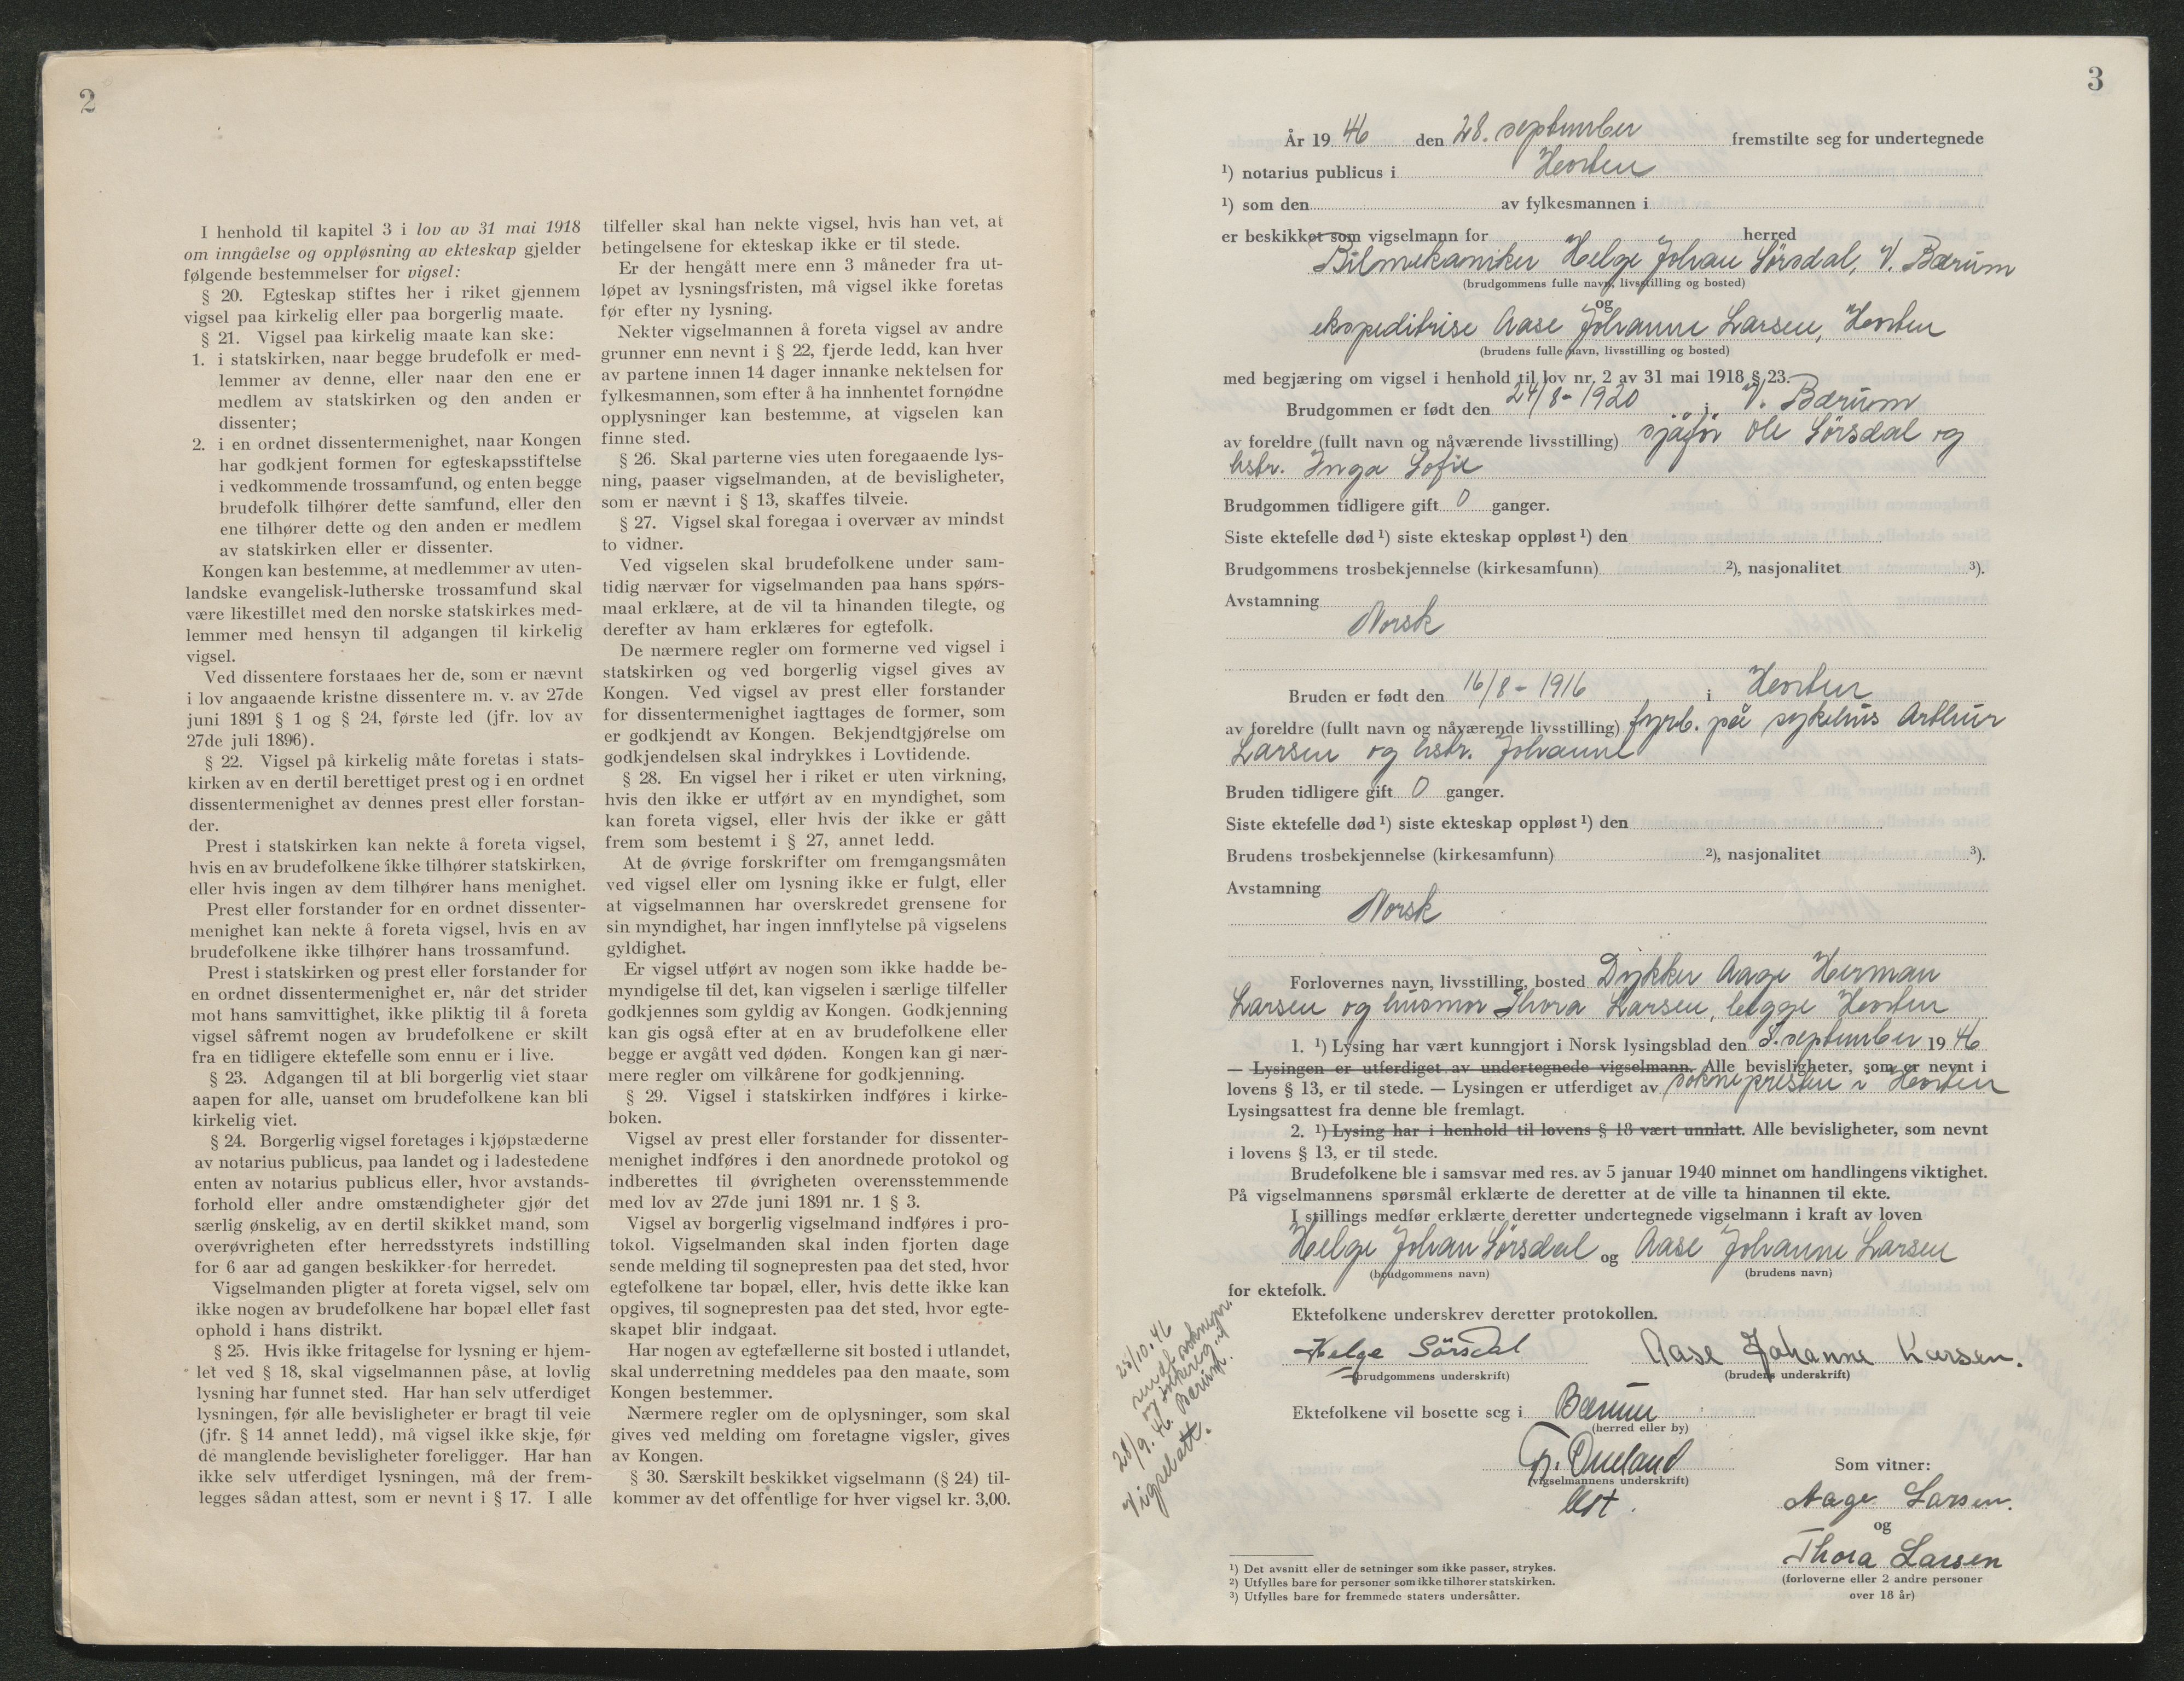 2
I henhold til kapitel 3 i lov av 31 mai 1918
om inngåelse og oppløsning av ekteskap gjelder
følgende bestemmelser for vigsel:
§ 20. Egteskap stiftes her i riket gjennem
vigsel paa kirkelig eller paa borgerlig maate.
§ 21. Vigsel paa kirkelig maate kan ske:
1. i statskirken, naar begge brudefolk er med-
lemmer av denne, eller naar den ene er
medlem av statskirken og den anden er
dissenter;
2. i en ordnet dissentermenighet, naar Kongen
har godkjent formen for egteskapsstiftelse
i vedkommende trossamfund, og enten begge
brudefolk tilhører dette samfund, eller den
ene tilhører dette og den anden er medlem
av statskirken eller er dissenter.
Kongen kan bestemme, at medlemmer av uten-
landske evangelisk-lutherske trossamfund skal
være likestillet med den norske statskirkes med-
lemmer med hensyn til adgangen til kirkelig
vigsel.
Ved dissentere forstaaes her de, som er nævnt
i lov angaaende kristne dissentere m. v. av 27de
juni 1891 § 1 og § 24, første led (jfr. lov av
27de juli 1896).
§ 22. Vigsel på kirkelig måte foretas i stats-
kirken av en dertil berettiget prest og i en ordnet
dissentermenighet av dennes prest eller forstan-
der.
Prest i statskirken kan nekte å foreta vigsel,
hvis en av brudefolkene ikke tilhører statskirken,
eller hvis ingen av dem tilhører hans menighet.
Prest eller forstander for en ordnet dissenter-
menighet kan nekte å foreta vigsel, hvis en av
brudefolkene ikke tilhører hans trossamfund.
Prest i statskirken og prest eller forstander for
en ordnet dissentermenighet er, når det strider
mot hans samvittighet, ikke pliktig til å foreta
vigsel såfremt nogen av brudefolkene er skilt
fra en tidligere ektefelle som ennu er i live.
§ 23. Adgangen til at bli borgerlig viet staar
aapen for alle, uanset om brudefolkene kan bli
kirkelig viet.
§ 24. Borgerlig vigsel foretages i kjøpstæderne
av notarius publicus, paa landet og i ladestedene
enten av notarius publicus eller, hvor avstands-
forhold eller andre omstændigheter gjør det
særlig ønskelig, av en dertil skikket mand, som
overøvrigheten efter herredsstyrets indstilling
for 6 aar ad gangen beskikker for herredet.
Vigselmanden pligter at foreta vigsel, selv om
ikke nogen av brudefolkene har bopæl eller fast
ophold i hans distrikt.
§ 25. Hvis ikke fritagelse for lysning er hjem-
let ved § 18, skal vigselmannen påse, at lovlig
lysning har funnet sted. Har han selv utferdiget
lysningen, før alle bevisligheter er bragt til veie
(jfr. § 14 annet ledd), må vigsel ikke skje, før
de manglende bevisligheter foreligger. Har han
ikke selv utferdiget lysningen, må der frem-
legges sådan attest, som er nevnt i § 17. I alle
tilfeller skal han nekte vigsel, hvis han vet, at
betingelsene for ekteskap ikke er til stede.
Er der hengått mere enn 3 måneder fra ut-
løpet av lysningsfristen, må vigsel ikke foretas
før efter ny lysning.
Nekter vigselmannen å foreta vigsel av andre
grunner enn nevnt i § 22, fjerde ledd, kan hver
av partene innen 14 dager innanke nektelsen for
fylkesmannen, som efter å ha innhentet fornødne
opplysninger kan bestemme, at vigselen kan
finne sted.
§ 26. Skal parterne vies uten foregaaende lys-
ning, paaser vigselmanden, at de bevisligheter,
som er nævnt i § 13, skaffes tilveie.
§ 27. Vigsel skal foregaa i overvær av mindst
to vidner.
Ved vigselen skal brudefolkene under sam-
tidig nærvær for vigselmanden paa hans spørs-
maal erklære, at de vil ta hinanden tilegte, og
derefter av ham erklæres for egtefolk.
De nærmere regler om formerne ved vigsel i
statskirken og ved borgerlig vigsel gives av
Kongen. Ved vigsel av prest eller forstander
for dissentermenighet iagttages de former, som
er godkjendt av Kongen. Bekjendtgjørelse om
godkjendelsen skal indrykkes i Lovtidende.
§ 28. En vigsel her i riket er uten virkning,
hvis den ikke er utført av en myndighet, som
kan foreta vigsel, eller hvis der ikke er gått
frem som bestemt i § 27, annet ledd.
At de øvrige forskrifter om fremgangsmåten
ved vigsel eller om lysning ikke er fulgt, eller
at vigselmannen har overskredet grensene for
sin myndighet, har ingen innflytelse på vigselens
gyldighet.
Er vigsel utført av nogen som ikke hadde be-
myndigelse til det, kan vigselen i særlige tilfeller
godkjennes som gyldig av Kongen. Godkjenning
kan gis også efter at en av brudefolkene eller
begge er avgått ved døden. Kongen kan gi nær-
mere regler om vilkårene for godkjenning.
§ 29. Vigsel i statskirken indføres i kirke-
boken.
Vigsel av prest eller forstander for dissenter-
menighet indføres i den anordnede protokol og
indberettes til øvrigheten overensstemmende
med lov av 27de juni 1891 nr. 1 § 3.
Vigsel av borgerlig vigselmand indføres i pro-
tokol. Vigselmanden skal inden fjorten dage
sende melding til sognepresten paa det sted, hvor
egtefolkene tar bopæl, eller, hvis dette ikke kan
opgives, til sognepresten paa det sted, hvor egte-
skapet blir indgaat.
Har nogen av egtefællerne sit bosted i utlandet,
skal underretning meddeles paa den maate, som
Kongen bestemmer.
Nærmere regler om de oplysninger, som skal
gives ved melding om foretagne vigsler, gives
av Kongen.
§ 30. Særskilt beskikket vigselmann (§ 24) til-
kommer av det offentlige for hver vigsel kr. 3,00.
3
År 1946 den 28. september fremstilte seg for undertegnede
1) notarius publicus i Horten
1) som den av fylkesmannen i
er beskikket som vigselmann for herred
Bilmekaniker Helge Johan Sörsdal, V. Bærum
(brudgommens fulle navn, livsstilling og bosted)
og
ekspeditrise Aase Johanne Larsen, Horten
(brudens fulle navn, livsstilling og bosted)
med begjæring om vigsel i henhold til lov nr. 2 av 31 mai 1918 § 23.
Brudgommen er født den 24/8-1920 i V. Bærum
av foreldre (fullt navn og nåværende livsstilling) sjåfør Ole Sörsdal og
hstr. Inga Sofie
Brudgommen tidligere gift 0 ganger.
Siste ektefelle død 1) siste ekteskap oppløst 1) den
Brudgommens trosbekjennelse (kirkesamfunn) 2), nasjonalitet 3).
Avstamning
Norsk
Bruden er født den 16/8-1916 i Horten
av foreldre (fullt navn og nåværende livsstilling) fyrb. på sykehus Arthur
Larsen og hstr. Johanne
Bruden tidligere gift 0 ganger.
Siste ektefelle død 1) siste ekteskap oppløst 1) den
Brudens trosbekjennelse (kirkesamfunn) 2), nasjonalitet 3).
Avstamning
Norsk
Forlovernes navn, livsstilling, bosted Dykker Aage Herman
Larsen og husmor Thora Larsen, begge Horten
1. 1) Lysing har vært kunngjort i Norsk lysingsblad den 3. september 1946
— Lysingen er utferdiget av undertegnede vigselmann. Alle bevisligheter, som er nevnt i
lovens § 13, er til stede. — Lysingen er utferdiget av soknepresten i Horten
Lysingsattest fra denne ble fremlagt.
2. 1) Lysing har i henhold til lovens § 18 vært unnlatt. Alle bevisligheter, som nevnt
i lovens § 13, er til stede.
Brudefolkene ble i samsvar med res. av 5 januar 1940 minnet om handlingens viktighet.
På vigselmannens spørsmål erklærte de deretter at de ville ta hinannen til ekte.
I stillings medfør erklærte deretter undertegnede vigselmann i kraft av loven
Helge Johan Sörsdal og Aase Johanne Larsen
(brudgommens navn) (brudens navn)
for ektefolk.
Ektefolkene underskrev deretter protokollen.
Helge Sörsdal Aase Johanne Larsen.
(brudgommens underskrift) (brudens underskrift)
Ektefolkene vil bosette seg i Bærum
(herred eller by)
(vigselmannens underskrift) Som vitner:
Aage Larsen.
og
Thora Larsen
(forloverne eller 2 andre personer
over 18 år)
23/10.46
28/9.46. Bærum.
Vigselatt.
1) Det avsnitt eller de setninger som ikke passer, strykes.
2) Utfylles bare for personer som ikke tilhører statskirken.
3) Utfylles bare for fremmede staters undersåtter.